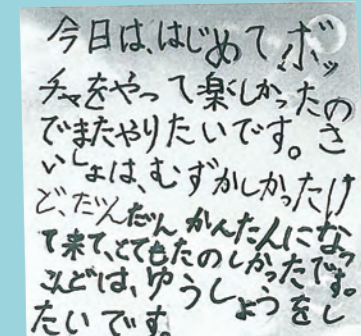 今日は、はじめて、ボッ
チャをやって楽しかったの
でまたやりたいです。さ
いしょは、むずかしかったけ
ど、だんだんかんたんになっ
て来て、とてもたのしかったです。
こんどは、ゆうしょうをし
たいです。